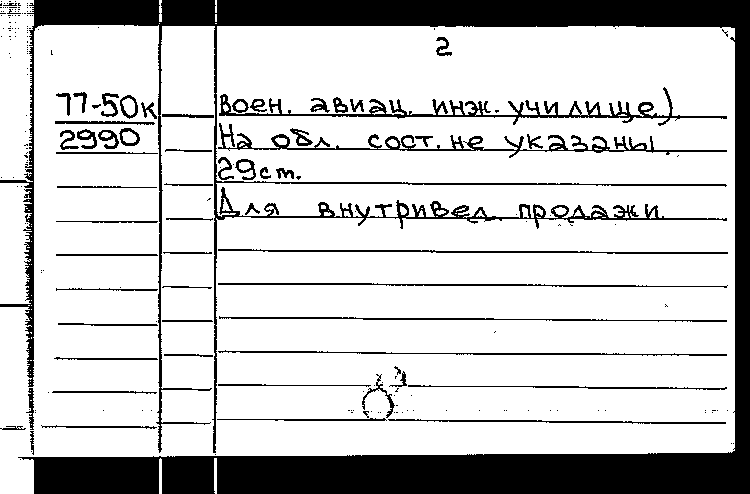 2
77-50к
2990
Воен. авиац. инж. училище).
На обл. сост. не указаны.
29 ст.
Для внутривед. продажи.